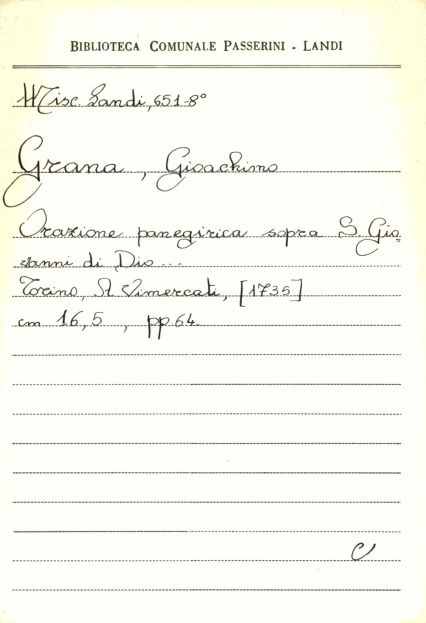 BIBLIOTECA COMUNALE PASSERINI - LANDI
Misc. Landi, 651-8°
Grana, Gioachimo
Orazione panegirica sopra S. Gio=
vanni di Dio...
Torino, A Vimercati, [1735]
cm 16,5, pp 64.
C